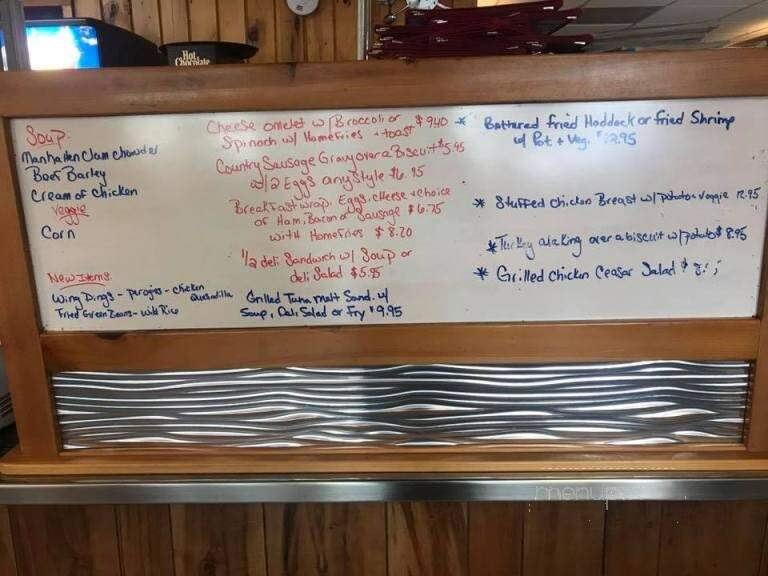 Hot
Chocolate
Soup:
Manhatten Clam Chowder
Beef Barley
Cream of Chicken
Veggie
Corn
New Items
Wing Dings - perogies - chicken
Quesadilla
Fried Green Beans - Wild Rice
Cheese omelet w/ Broccoli or $9.40
Spinach w/ Homefries + toast
Country Sausage Gravy over a Biscuit $5.95
w/ 2 Eggs any style $6.95
Breakfast wrap. Eggs, cheese + choice
of Ham, Bacon or Sausage $6.75
with Homefries $8.20
1/2 deli Sandwich w/ Soup or
deli Salad $5.85
Grilled Tuna melt Sand. w/
Soup, Deli Salad or Fry $9.95
* Battered Fried Haddock or fried Shrimp
w/ Pot + Veg. $12.95
* Stuffed chicken Breast w/ potato + veggie 12.95
* Turkey ala king over a biscuit w/ potato $8.95
* Grilled Chicken Ceasar Salad $8.